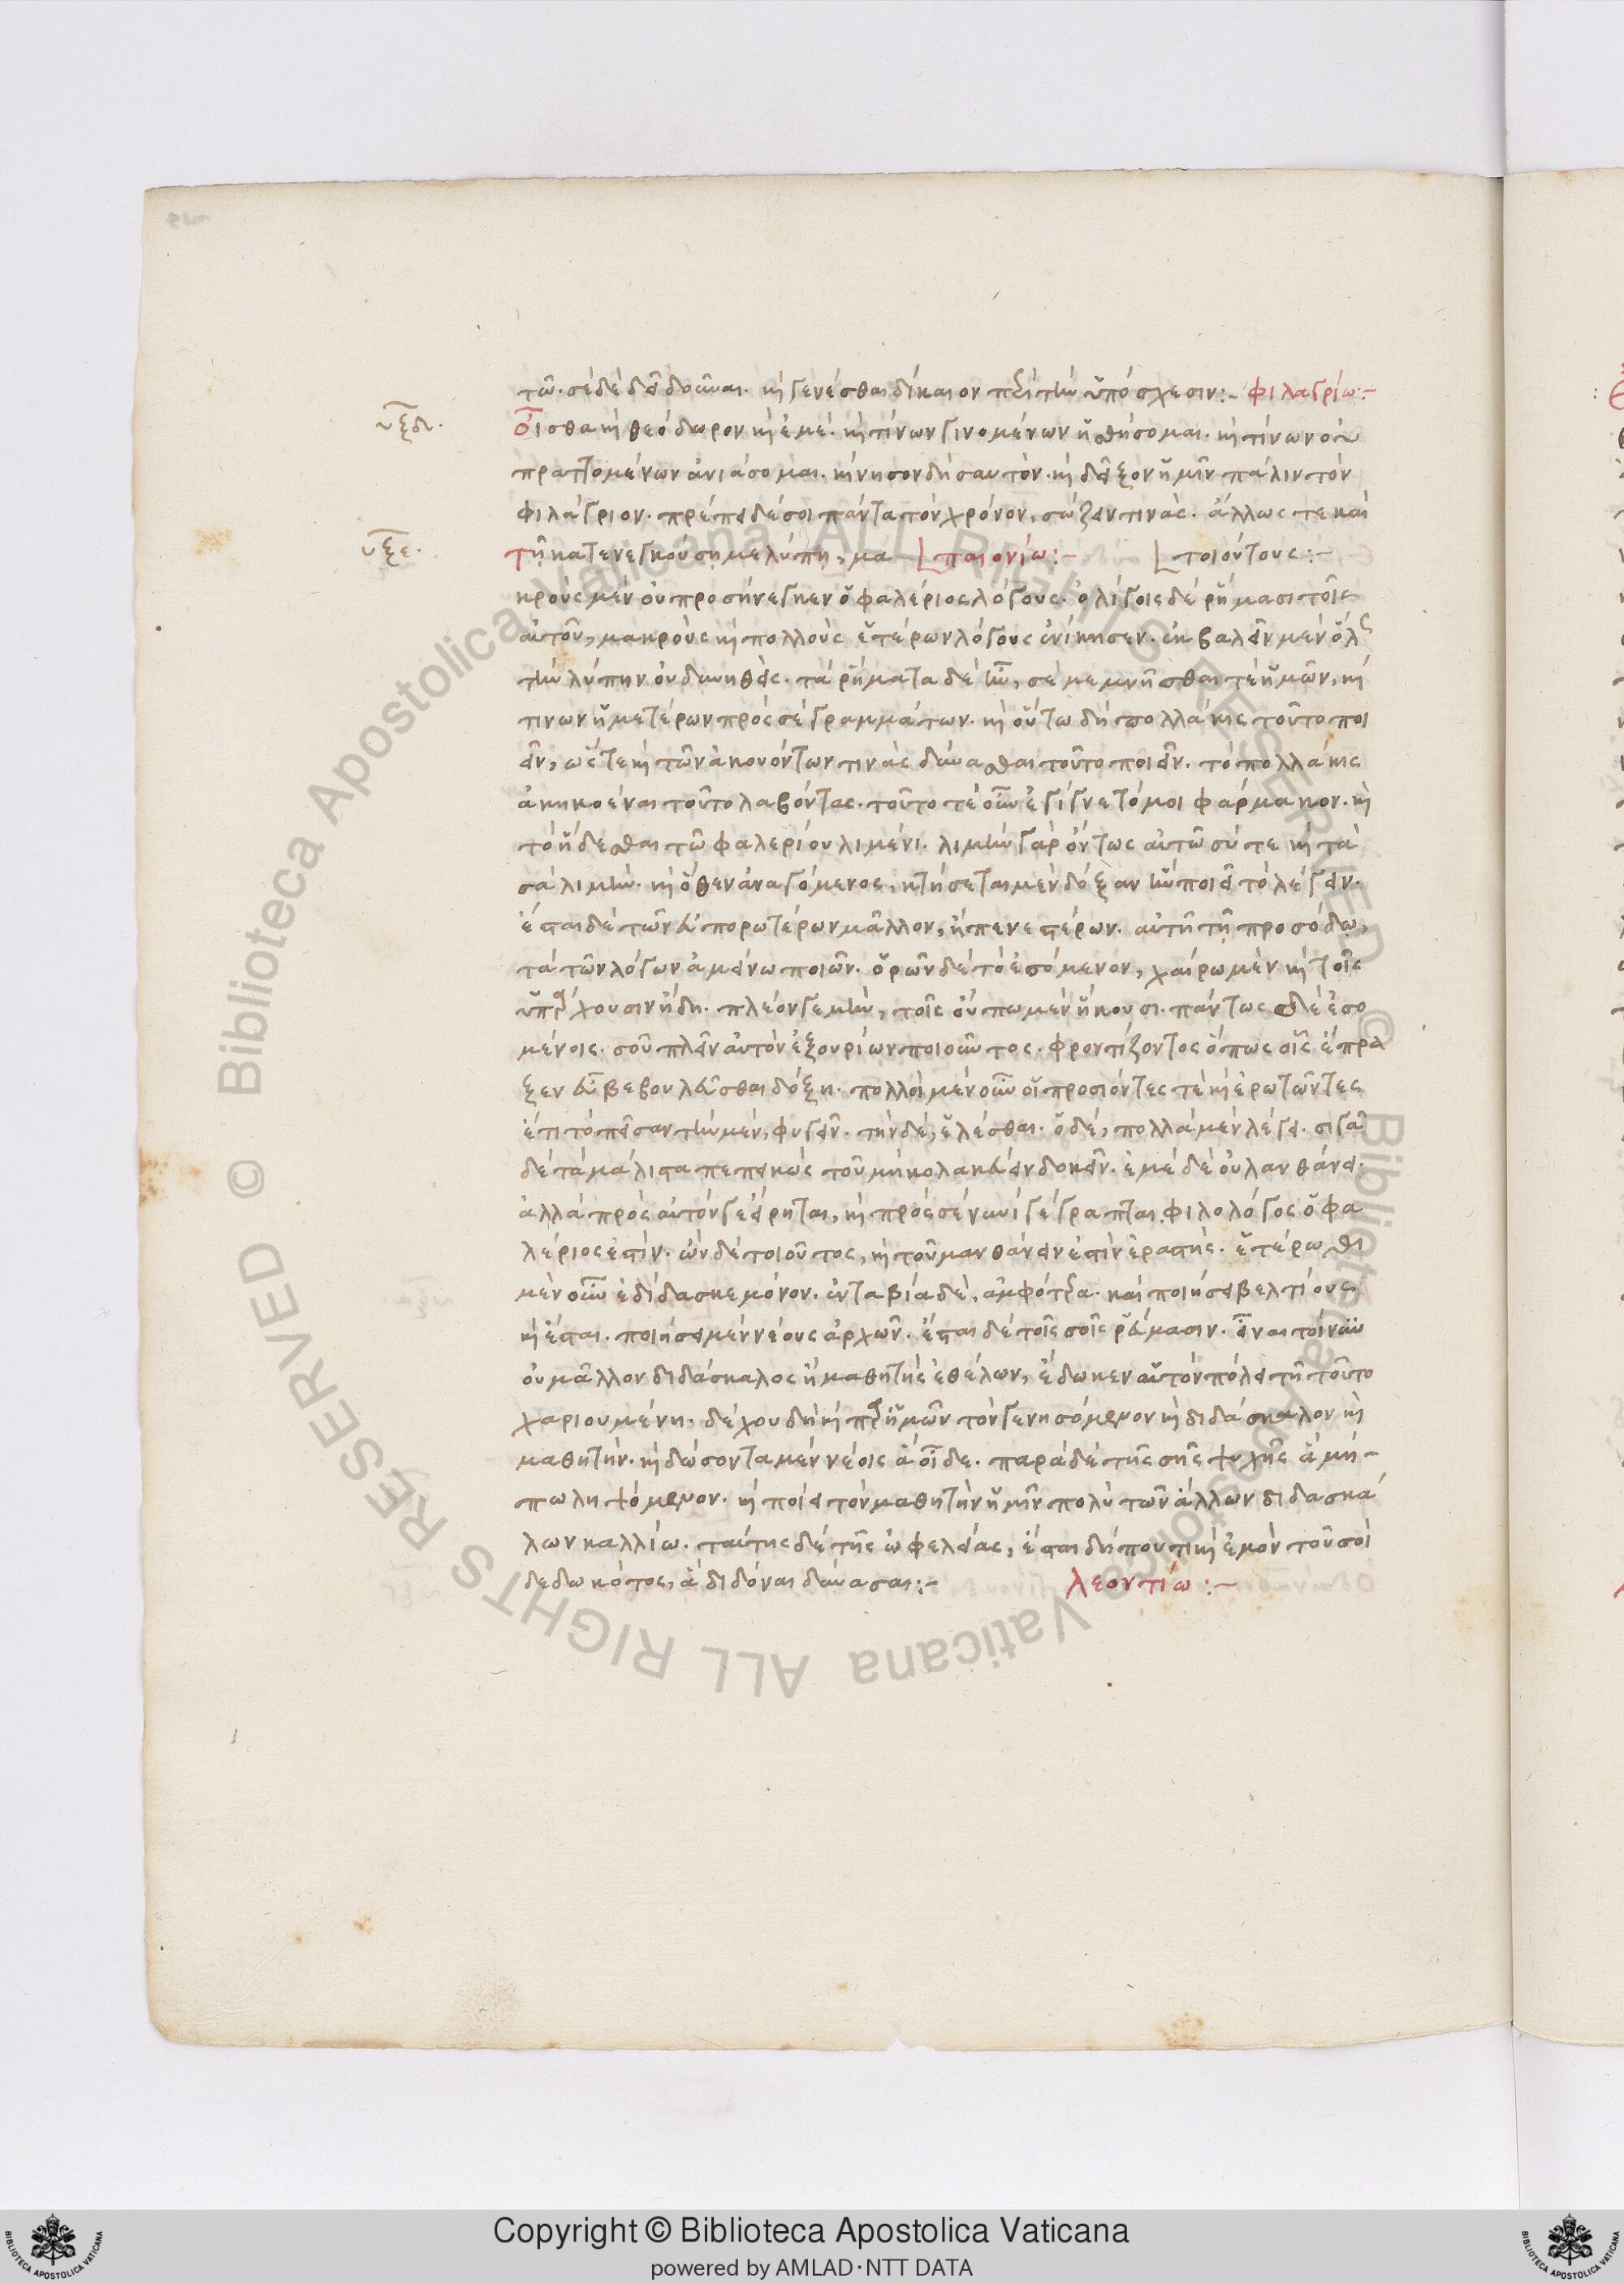 τῶ. σὲ δὲ δεῖ δοῦναι. καὶ γενέσθαι δίκαιον περὶ τὴν ὑπόσχεσιν:- φιλαγρίω:-
υξδ. οἶσθα καὶ θεόδωρον καὶ ἐμέ. καὶ τίνων γινομένων ἡσθήσομαι. καὶ τίνων οὐ
πραττομένων ἀνιάσομαι. κίνησον δὴ σαυτὸν. καὶ δεῖξον ἡμῖν πάλιν τὸν
φιλάγριον. πρέπει δέ σοι πάντα τὸν χρόνον, σώζειν τινὰς. ἄλλως τε καὶ
υξε. τῆ κατενεγκούση με λύπη, μα παιονίω:- τοιούτους:-
κροὺς μὲν οὐ προσήνεγκεν ὁ φαλέριος λόγους. ὀλίγοις δὲ ῥήμασι τοῖς
αὑτοῦ, μακροὺς καὶ πολλοὺς ἑτέρων λόγους ἐνίκησεν. ἐκβαλεῖν μὲν ὅλως
τὴν λύπην οὐ δυνηθείς. τὰ ῥήματα δὲ ἦν, σὲ μεμνῆσθαί τε ἡμῶν, καὶ
τινων ἡμετέρων πρὸς σὲ γραμμάτων. καὶ οὕτω δὴ πολλάκις τοῦτο ποι
εῖν, ὥστε καὶ τῶν ἀκουόντων τινὰς δύνασθαι τοῦτο ποιεῖν. τὸ πολλάκις
ἀκηκοέναι τοῦτο λαβόντας. τοῦτό τε οὖν ἐγίγνετό μοι φάρμακον. καὶ
τὸ ἥδεσθαι τῶ φαλερίου λιμένι. λιμὴν γὰρ ὄντως αὐτῶ σύ τε καὶ τὰ
σὰ λιμήν. καὶ ὅθεν ἀναγόμενος, κτήσεται μὲν δόξαν ἣν ποιεῖ τὸ λέγειν.
ἔσται δὲ τῶν εὐπορωτέρων μᾶλλον, ἢ πενεστέρων. αὐτῆ τῆ προσόδω,
τὰ τῶν λόγων ἀμείνω ποιῶν. ὁρῶν δὲ τὸ ἐσόμενον, χαίρω μὲν καὶ τοῖς
ὑπάρχουσιν ἤδη. πλέον γε μὴν, τοῖς οὔπω μὲν ἥκουσι. πάντως δὲ ἐσο
μένοις. σοῦ πλεῖν αὐτὸν ἐξ οὐρίων ποιοῦντος. φροντίζοντος ὅπως οἷς ἔπρα
ξεν εὖ βεβουλεῦσθαι δόξη. πολλοὶ μὲν οὖν οἱ προσιόντες τε καὶ ἐρωτῶντες
ἔτι τὸ πεῖσαν τὴν μὲν, φυγεῖν. τὴν δὲ, ἑλέσθαι. ὁ δὲ, πολλὰ μὲν λέγει. σιγᾶ
δὲ τὰ μάλιστα πεπεικὼς τοῦ μὴ κολακεύειν δοκεῖν. ἐμὲ δὲ οὐ λανθάνει.
ἀλλὰ πρὸς αὐτόν γε εἴρηται, καὶ πρὸς σὲ νυνὶ γέγραπται. φιλολόγος ὁ φα
λέριός ἐστιν. ὢν δὲ τοιοῦτος, καὶ τοῦ μανθάνειν ἐστὶν ἐραστής. ἑτέρωθι
μὲν οὖν ἐδίδασκε μόνον. ἐνταβία δὲ, ἀμφότερα. καὶ ποιήσει βελτίους
καὶ ἔσται. ποιήσει μὲν νέους ἄρχων. ἔσται δὲ τοῖς σοῖς ῥεύμασιν. εἶναι τοίνυν
οὐ μᾶλλον διδάσκαλος ἢ μαθητὴς ἐθέλων, ἔδωκεν αὑτὸν πόλει τῆ τοῦτο
χαριουμένη. δέχου δὴ καὶ παρ' ἡμῶν τὸν γενησόμενον καὶ διδάσκαλον καὶ
μαθητήν. καὶ δώσοντα μὲν νέοις ἃ οἶδε. παρὰ δὲ τῆς σῆς ψυχῆς ἃ μή-
πω ληψόμενον. καὶ ποίει τὸν μαθητὴν ἡμῖν πολὺ τῶν ἄλλων διδασκά
λων καλλίω. ταύτης δὲ τῆς ὠφελείας, ἔσται δήπου τι καὶ ἐμὸν τοῦ σοὶ
δεδωκότος, ἃ διδόναι δύνασαι:- λεοντίω:-
Copyright © Biblioteca Apostolica Vaticana
powered by AMLAD·NTT DATA
© Biblioteca Apostolica Vaticana ALL RIGHTS RESERVED © Biblioteca Apostolica Vaticana ALL RIGHTS RESERVED
BIBLIOTECA APOSTOLICA VATICANA
BIBLIOTECA APOSTOLICA VATICANA